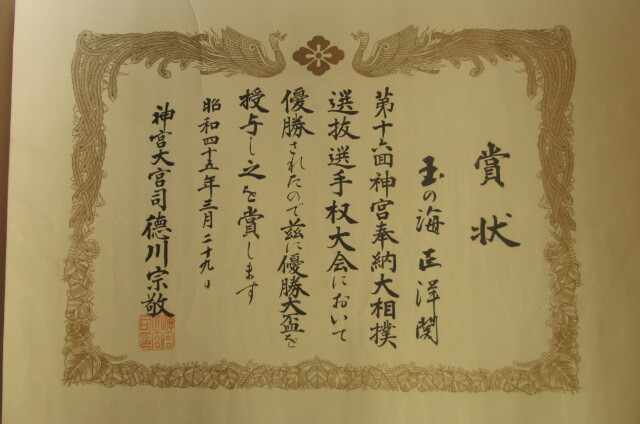 賞状
玉の海正洋関
第十六回神宮奉納大相撲
選抜選手权大会において
優勝されたので茲に優勝大盃を
授与し之を賞します
昭和四十五年三月二十九日
神宮大宮司徳川宗敬